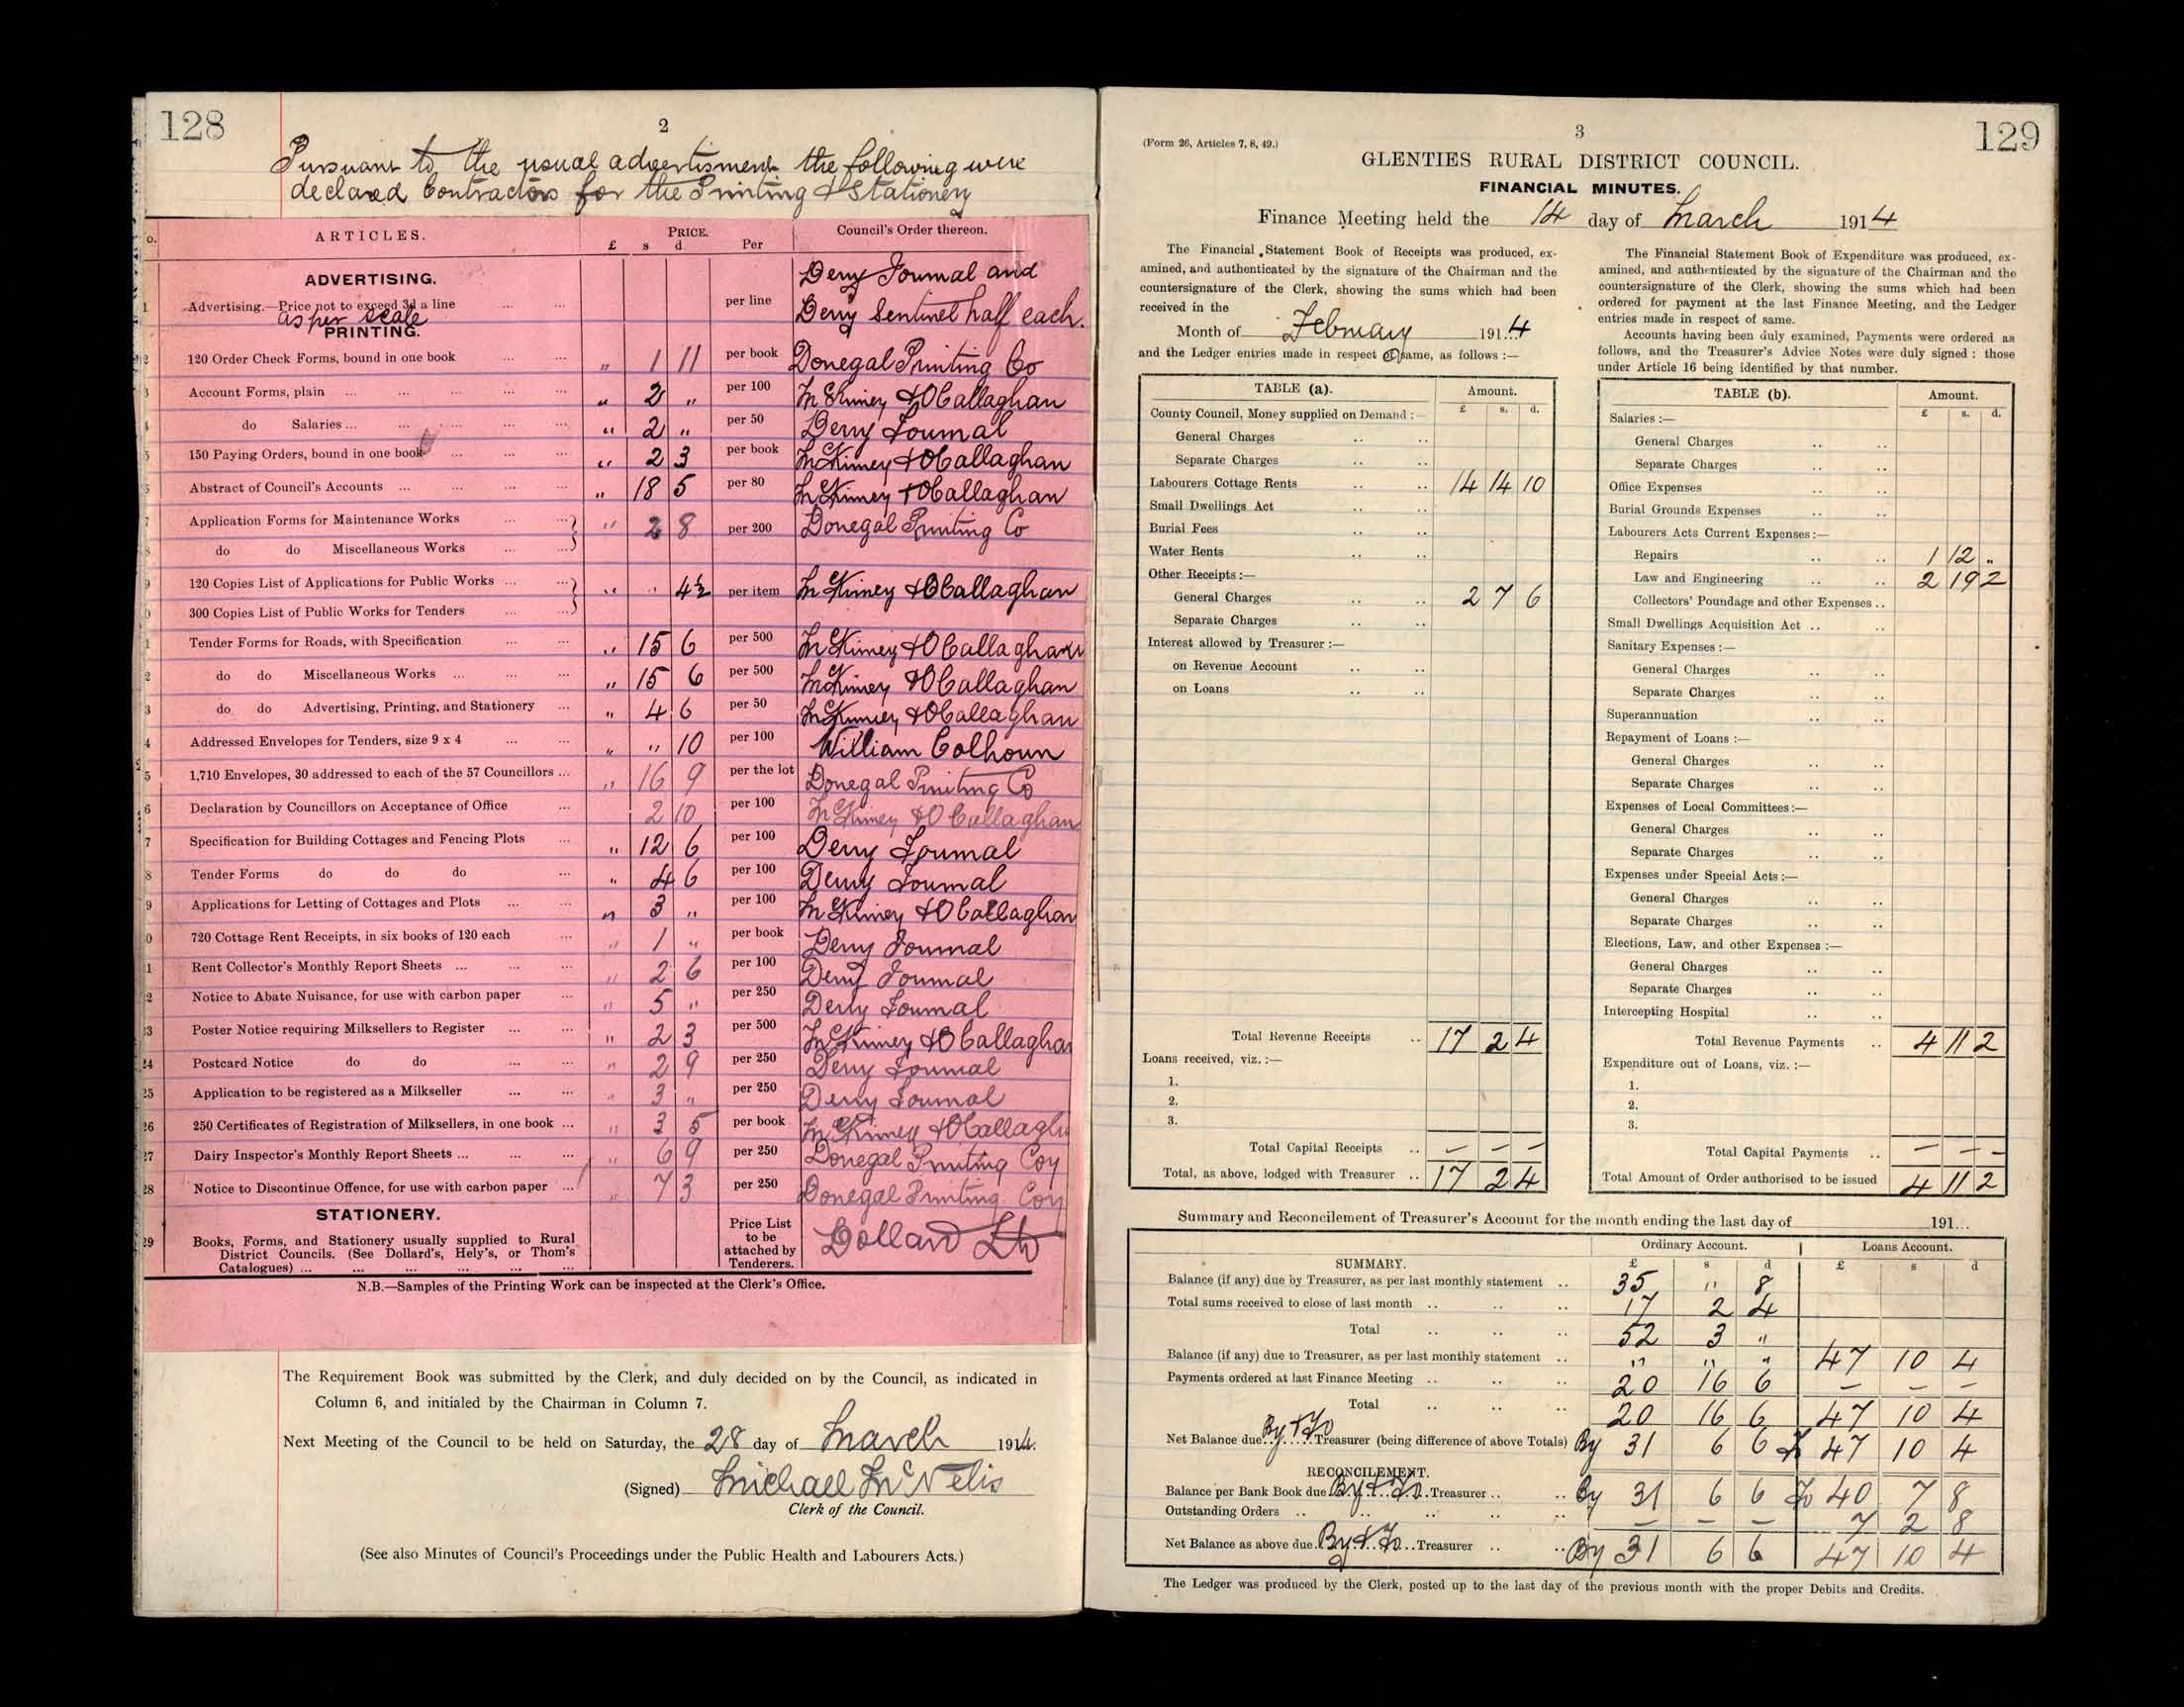 128
2
Pursuant to the usual advertisment the following were
declared Contractors for the Printing & Stationery
o. ARTICLES. PRICE. Council's Order thereon.
£ s d Per
ADVERTISING. Derry Journal and
1 Advertising.—Price not to exceed 3d a line ... ... per line Derry Sentinel half each.
as per scale
PRINTING.
2 120 Order Check Forms, bound in one book ... ... „ 1 11 per book Donegal Printing Co
3 Account Forms, plain ... ... ... ... ... „ 2 „ per 100 McKinney & O'Callaghan
4 do Salaries ... ... ... ... ... „ 2 „ per 50 Derry Journal
5 150 Paying Orders, bound in one book ... ... ... „ 2 3 per book McKinney & O'Callaghan
6 Abstract of Council's Accounts ... ... ... ... „ 18 5 per 80 McKinney & O'Callaghan
7 Application Forms for Maintenance Works ... ... „ 2 8 per 200 Donegal Printing Co
8 do do Miscellaneous Works ... ...
9 120 Copies List of Applications for Public Works ... ... „ „ 4½ per item McKinney & O'Callaghan
0 300 Copies List of Public Works for Tenders ... ...
1 Tender Forms for Roads, with Specification ... ... „ 15 6 per 500 McKinney & O'Callaghan
2 do do Miscellaneous Works ... ... ... „ 15 6 per 500 McKinney & O'Callaghan
3 do do Advertising, Printing, and Stationery ... „ 4 6 per 50 McKinney & O'Callaghan
4 Addressed Envelopes for Tenders, size 9 x 4 ... ... „ „ 10 per 100 William Colhoun
5 1,710 Envelopes, 30 addressed to each of the 57 Councillors ... „ 16 9 per the lot Donegal Printing Co
6 Declaration by Councillors on Acceptance of Office ... 2 10 per 100 McKinney & O'Callaghan
7 Specification for Building Cottages and Fencing Plots ... „ 12 6 per 100 Derry Journal
8 Tender Forms do do do ... „ 4 6 per 100 Derry Journal
9 Applications for Letting of Cottages and Plots ... ... „ 3 „ per 100 McKinney & O'Callaghan
0 720 Cottage Rent Receipts, in six books of 120 each ... „ 1 „ per book Derry Journal
1 Rent Collector's Monthly Report Sheets ... ... ... „ 2 6 per 100 Derry Journal
2 Notice to Abate Nuisance, for use with carbon paper ... „ 5 „ per 250 Derry Journal
3 Poster Notice requiring Milksellers to Register ... ... „ 2 3 per 500 McKinney & O'Callaghan
24 Postcard Notice do do ... ... „ 2 9 per 250 Derry Journal
25 Application to be registered as a Milkseller ... ... „ 3 „ per 250 Derry Journal
26 250 Certificates of Registration of Milksellers, in one book ... „ 3 5 per book McKinney & O'Callagh
27 Dairy Inspector's Monthly Report Sheets ... ... ... „ 6 9 per 250 Donegal Printing Coy
28 Notice to Discontinue Offence, for use with carbon paper ... „ 7 3 per 250 Donegal Printing Coy
STATIONERY.
29 Books, Forms, and Stationery usually supplied to Rural
District Councils. (See Dollard's, Hely's, or Thom's
Catalogues) ... ... ... ... ... ...
Price List
to be
attached by
Tenderers.
Dollard Ltd
N.B.—Samples of the Printing Work can be inspected at the Clerk's Office.
The Requirement Book was submitted by the Clerk, and duly decided on by the Council, as indicated in
Column 6, and initialed by the Chairman in Column 7.
Next Meeting of the Council to be held on Saturday, the 28 day of March 1914.
(Signed) Michael McNelis
Clerk of the Council.
(See also Minutes of Council's Proceedings under the Public Health and Labourers Acts.)
3
129
(Form 26, Articles 7, 8, 49.)
GLENTIES RURAL DISTRICT COUNCIL.
FINANCIAL MINUTES.
Finance Meeting held the 14 day of March 1914
The Financial Statement Book of Receipts was produced, ex-
amined, and authenticated by the signature of the Chairman and the
countersignature of the Clerk, showing the sums which had been
received in the
Month of February 191..4
and the Ledger entries made in respect of same, as follows :—
TABLE (a). Amount.
£ s. d.
County Council, Money supplied on Demand :—
General Charges .. ..
Separate Charges .. ..
Labourers Cottage Rents .. .. 14 14 10
Small Dwellings Act .. ..
Burial Fees .. ..
Water Rents .. ..
Other Receipts :—
General Charges .. .. 2 7 6
Separate Charges .. ..
Interest allowed by Treasurer :—
on Revenue Account .. ..
on Loans .. ..
Total Revenue Receipts .. 17 2 4
Loans received, viz. :—
1.
2.
3.
Total Capital Receipts .. — — —
Total, as above, lodged with Treasurer .. 17 2 4
The Financial Statement Book of Expenditure was produced, ex-
amined, and authenticated by the signature of the Chairman and the
countersignature of the Clerk, showing the sums which had been
ordered for payment at the last Finance Meeting, and the Ledger
entries made in respect of same.
Accounts having been duly examined, Payments were ordered as
follows, and the Treasurer's Advice Notes were duly signed : those
under Article 16 being identified by that number.
TABLE (b). Amount.
£ s. d.
Salaries :—
General Charges .. ..
Separate Charges .. ..
Office Expenses .. ..
Burial Grounds Expenses .. ..
Labourers Acts Current Expenses :—
Repairs .. .. 1 12 „
Law and Engineering .. .. 2 19 2
Collectors' Poundage and other Expenses ..
Small Dwellings Acquisition Act .. ..
Sanitary Expenses :—
General Charges .. ..
Separate Charges .. ..
Superannuation .. ..
Repayment of Loans :—
General Charges .. ..
Separate Charges .. ..
Expenses of Local Committees :—
General Charges .. ..
Separate Charges .. ..
Expenses under Special Acts :—
General Charges .. ..
Separate Charges .. ..
Elections, Law, and other Expenses :—
General Charges .. ..
Separate Charges .. ..
Intercepting Hospital .. ..
Total Revenue Payments .. 4 11 2
Expenditure out of Loans, viz. :—
1.
2.
3.
Total Capital Payments .. — — —
Total Amount of Order authorised to be issued 4 11 2
Summary and Reconcilement of Treasurer's Account for the month ending the last day of 191...
Ordinary Account. Loans Account.
SUMMARY. £ s d £ s d
Balance (if any) due by Treasurer, as per last monthly statement .. 35 „ 8
Total sums received to close of last month .. .. .. 17 2 4
Total .. .. .. 52 3 „
Balance (if any) due to Treasurer, as per last monthly statement .. „ „ „ 47 10 4
Payments ordered at last Finance Meeting .. .. .. 20 16 6 — — —
Total .. .. .. 20 16 6 47 10 4
Net Balance due By & To Treasurer (being difference of above Totals) By 31 6 6 To 47 10 4
RECONCILEMENT.
Balance per Bank Book due By & To Treasurer .. .. By 31 6 6 To 40 7 8
Outstanding Orders .. .. .. .. .. — — — 7 2 8
Net Balance as above due By & To Treasurer .. .. By 31 6 6 47 10 4
The Ledger was produced by the Clerk, posted up to the last day of the previous month with the proper Debits and Credits.